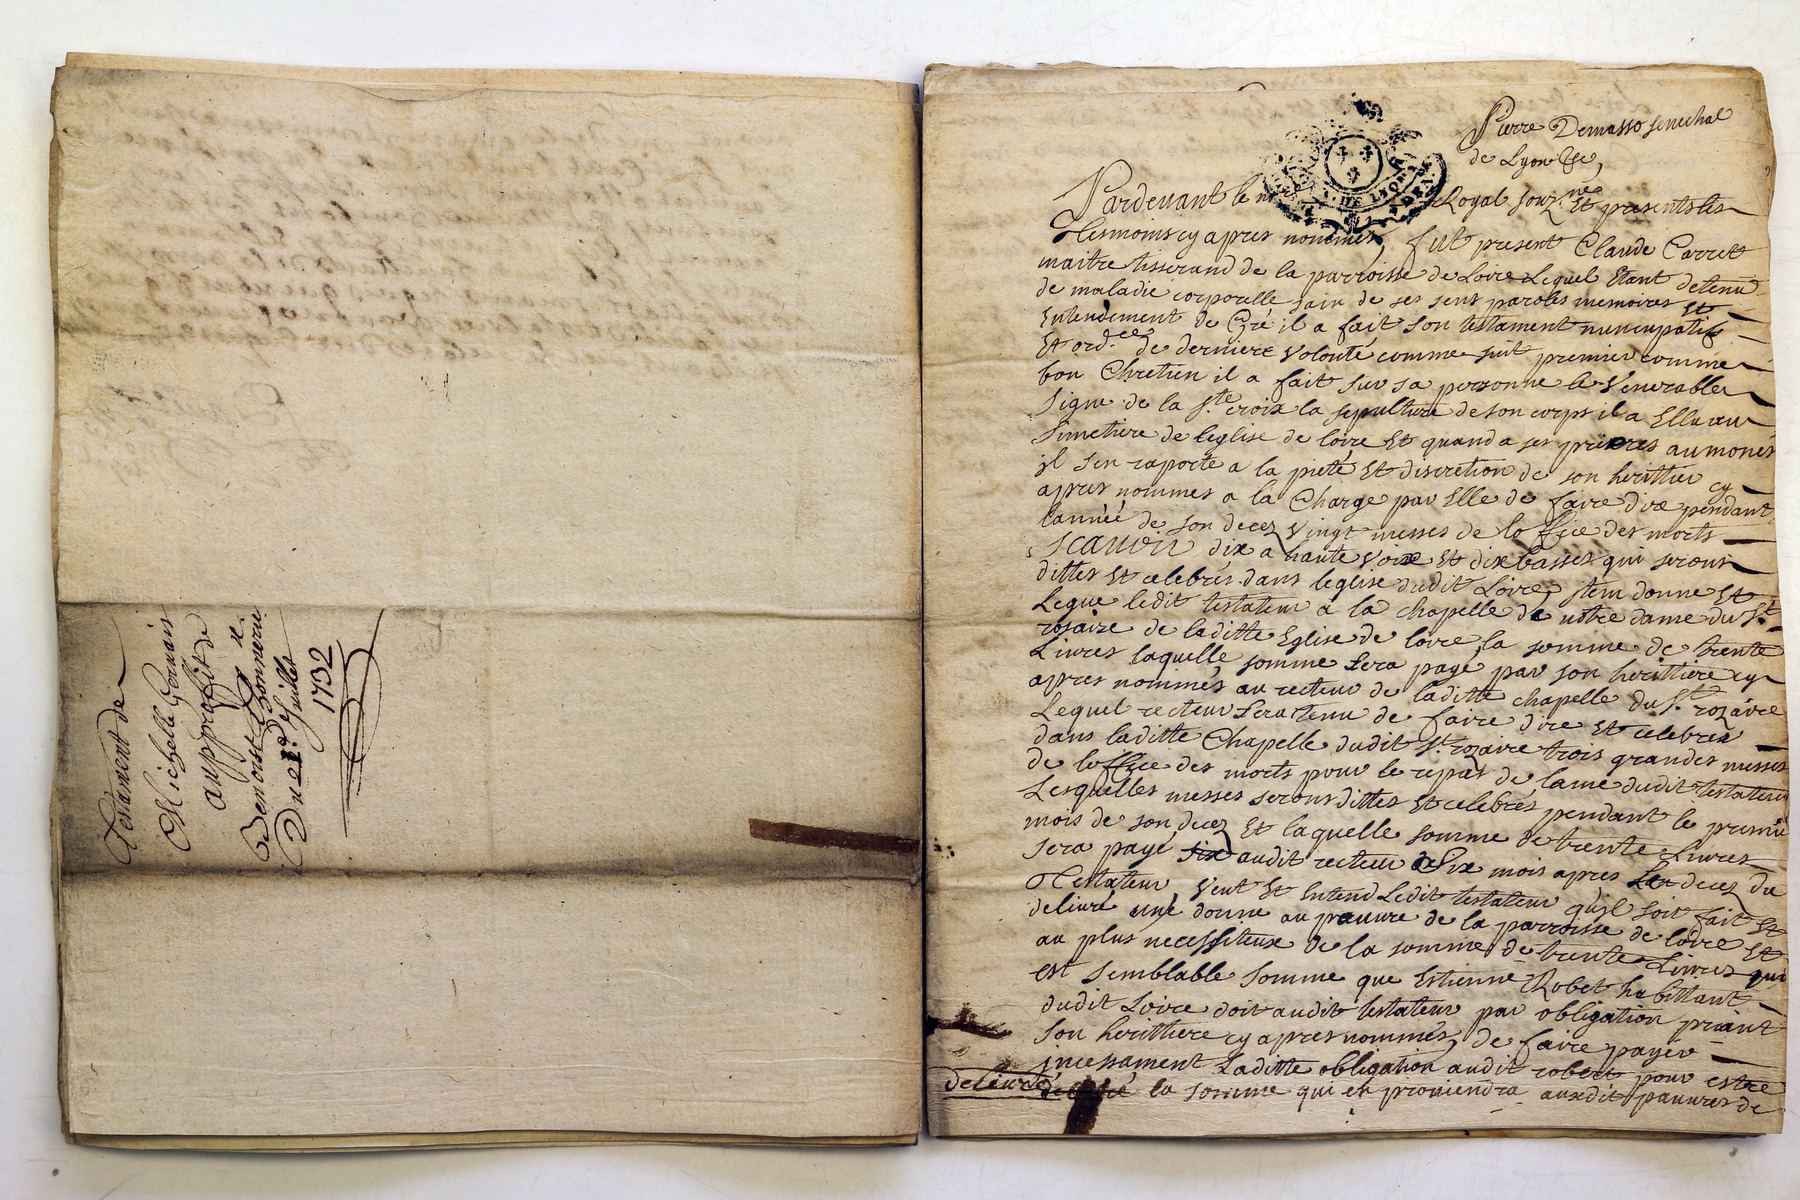 Testament de
Michelle Gervais
au proffit de
Benoiste
Du 1er Juillet
1732
Pierre Demasso senechal
de Lyon &c,
DE LYON
Pardevant le Royal souz.né Et presents les
tesmoins cy apres nommés, fut present Claude Carret
maitre tisserand de la parroisse de Loire Lequel Etant detenu
de maladie corporelle sain de ses sens paroles memoires Et
Entendement de Gré il a fait son testament nuncupatif
Et ord.ce de derniere Volonté comme suit premier comme
bon Chretien il a fait sur sa personne le Venerable
signe de la s.te croix la sepulture de son corps il a Ellu au
simetiere de leglise de loire Et quand a ses prieres aumones
il s'en raporte a la pieté Et discretion de son herittier cy
apres nommés a la Charge par Elle de faire dire pendant
lannéé de son decez Vingt messes de loffice des morts
scavoir dix a haute Voixe Et dix basses qui serons
dittes Et celebrés dans leglise dudit Loire, Item donne Et
Legue ledit testateur a la chapelle de notre dame du S.t
rozaire de laditte Eglise de loire la somme de trente
Livres laquelle somme sera payé par son herittiere cy
apres nommés au recteur de laditte chapelle du S.t rozaire
Lequel recteur sera tenu de faire dire Et celebrer
dans laditte Chapelle dudit S.t rozaire trois grandes messes
de loffice des morts pour le repas de lame dudit testateur
Lesquelles messes serons dittes Et celebrés pendant le premier
mois de son decez Et laquelle somme de trente Livres
sera payé six audit recteur Six mois apres Le decez du
testateur, Veut Et Entend Ledit testateur qu'il soit fait Et
delivré une donne au pauvre de la parroisse de loire Et
au plus necessiteux de la somme de trente Livres qui
est semblable somme que Estienne Robet habittant
dudit Loire doit audit testateur par obligation priant
son herittiere cy apres nommés, de faire payer
incessament Laditte obligation audit robert pour estre
delivré la somme qui en proviendra auxdit pauvres de